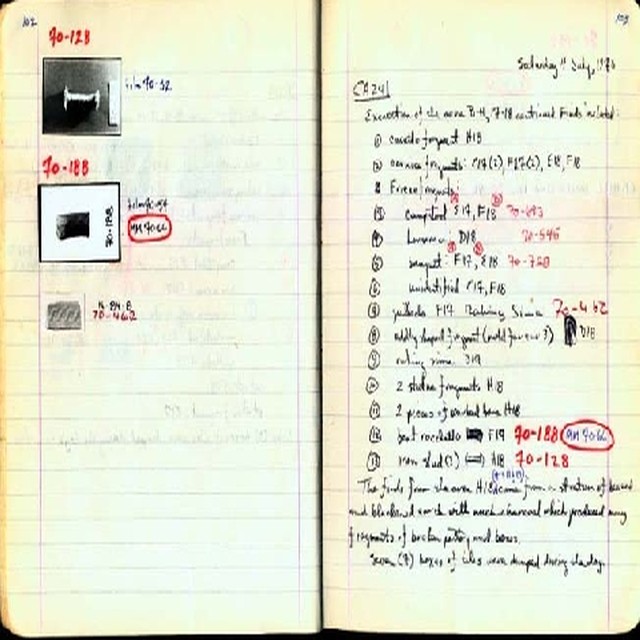 102
70-128
film 70-52
70-188
70-188
film 70-54
MM 7066
70-462
103
Saturday 11 July, 1970
CA241
Excavation of the area E-H, 17-18 continued. Finds included:
① fragment H18
② cornice fragments: E17(2), F17(2), E18, F18
Frieze fragments:
E17, F18 70-693
④ D18 70-546
⑤ F17, E18 70-750
⑥ unidentified E17, F18
F17 Raking Sima 70-462
⑧ oddly shaped fragment D18
⑨ raking sima
⑩ 2 statue fragments H18
⑪ 2 pieces of worked bone H18
⑫ rocchetto F19 70-188 MM 7066
⑬ H18 70-128
The finds from the area H18 came from a stratum of
and blackened earth with much charcoal which produced many
fragments of broken pottery and bones.
Seven (7) boxes of tiles were dumped during the day.